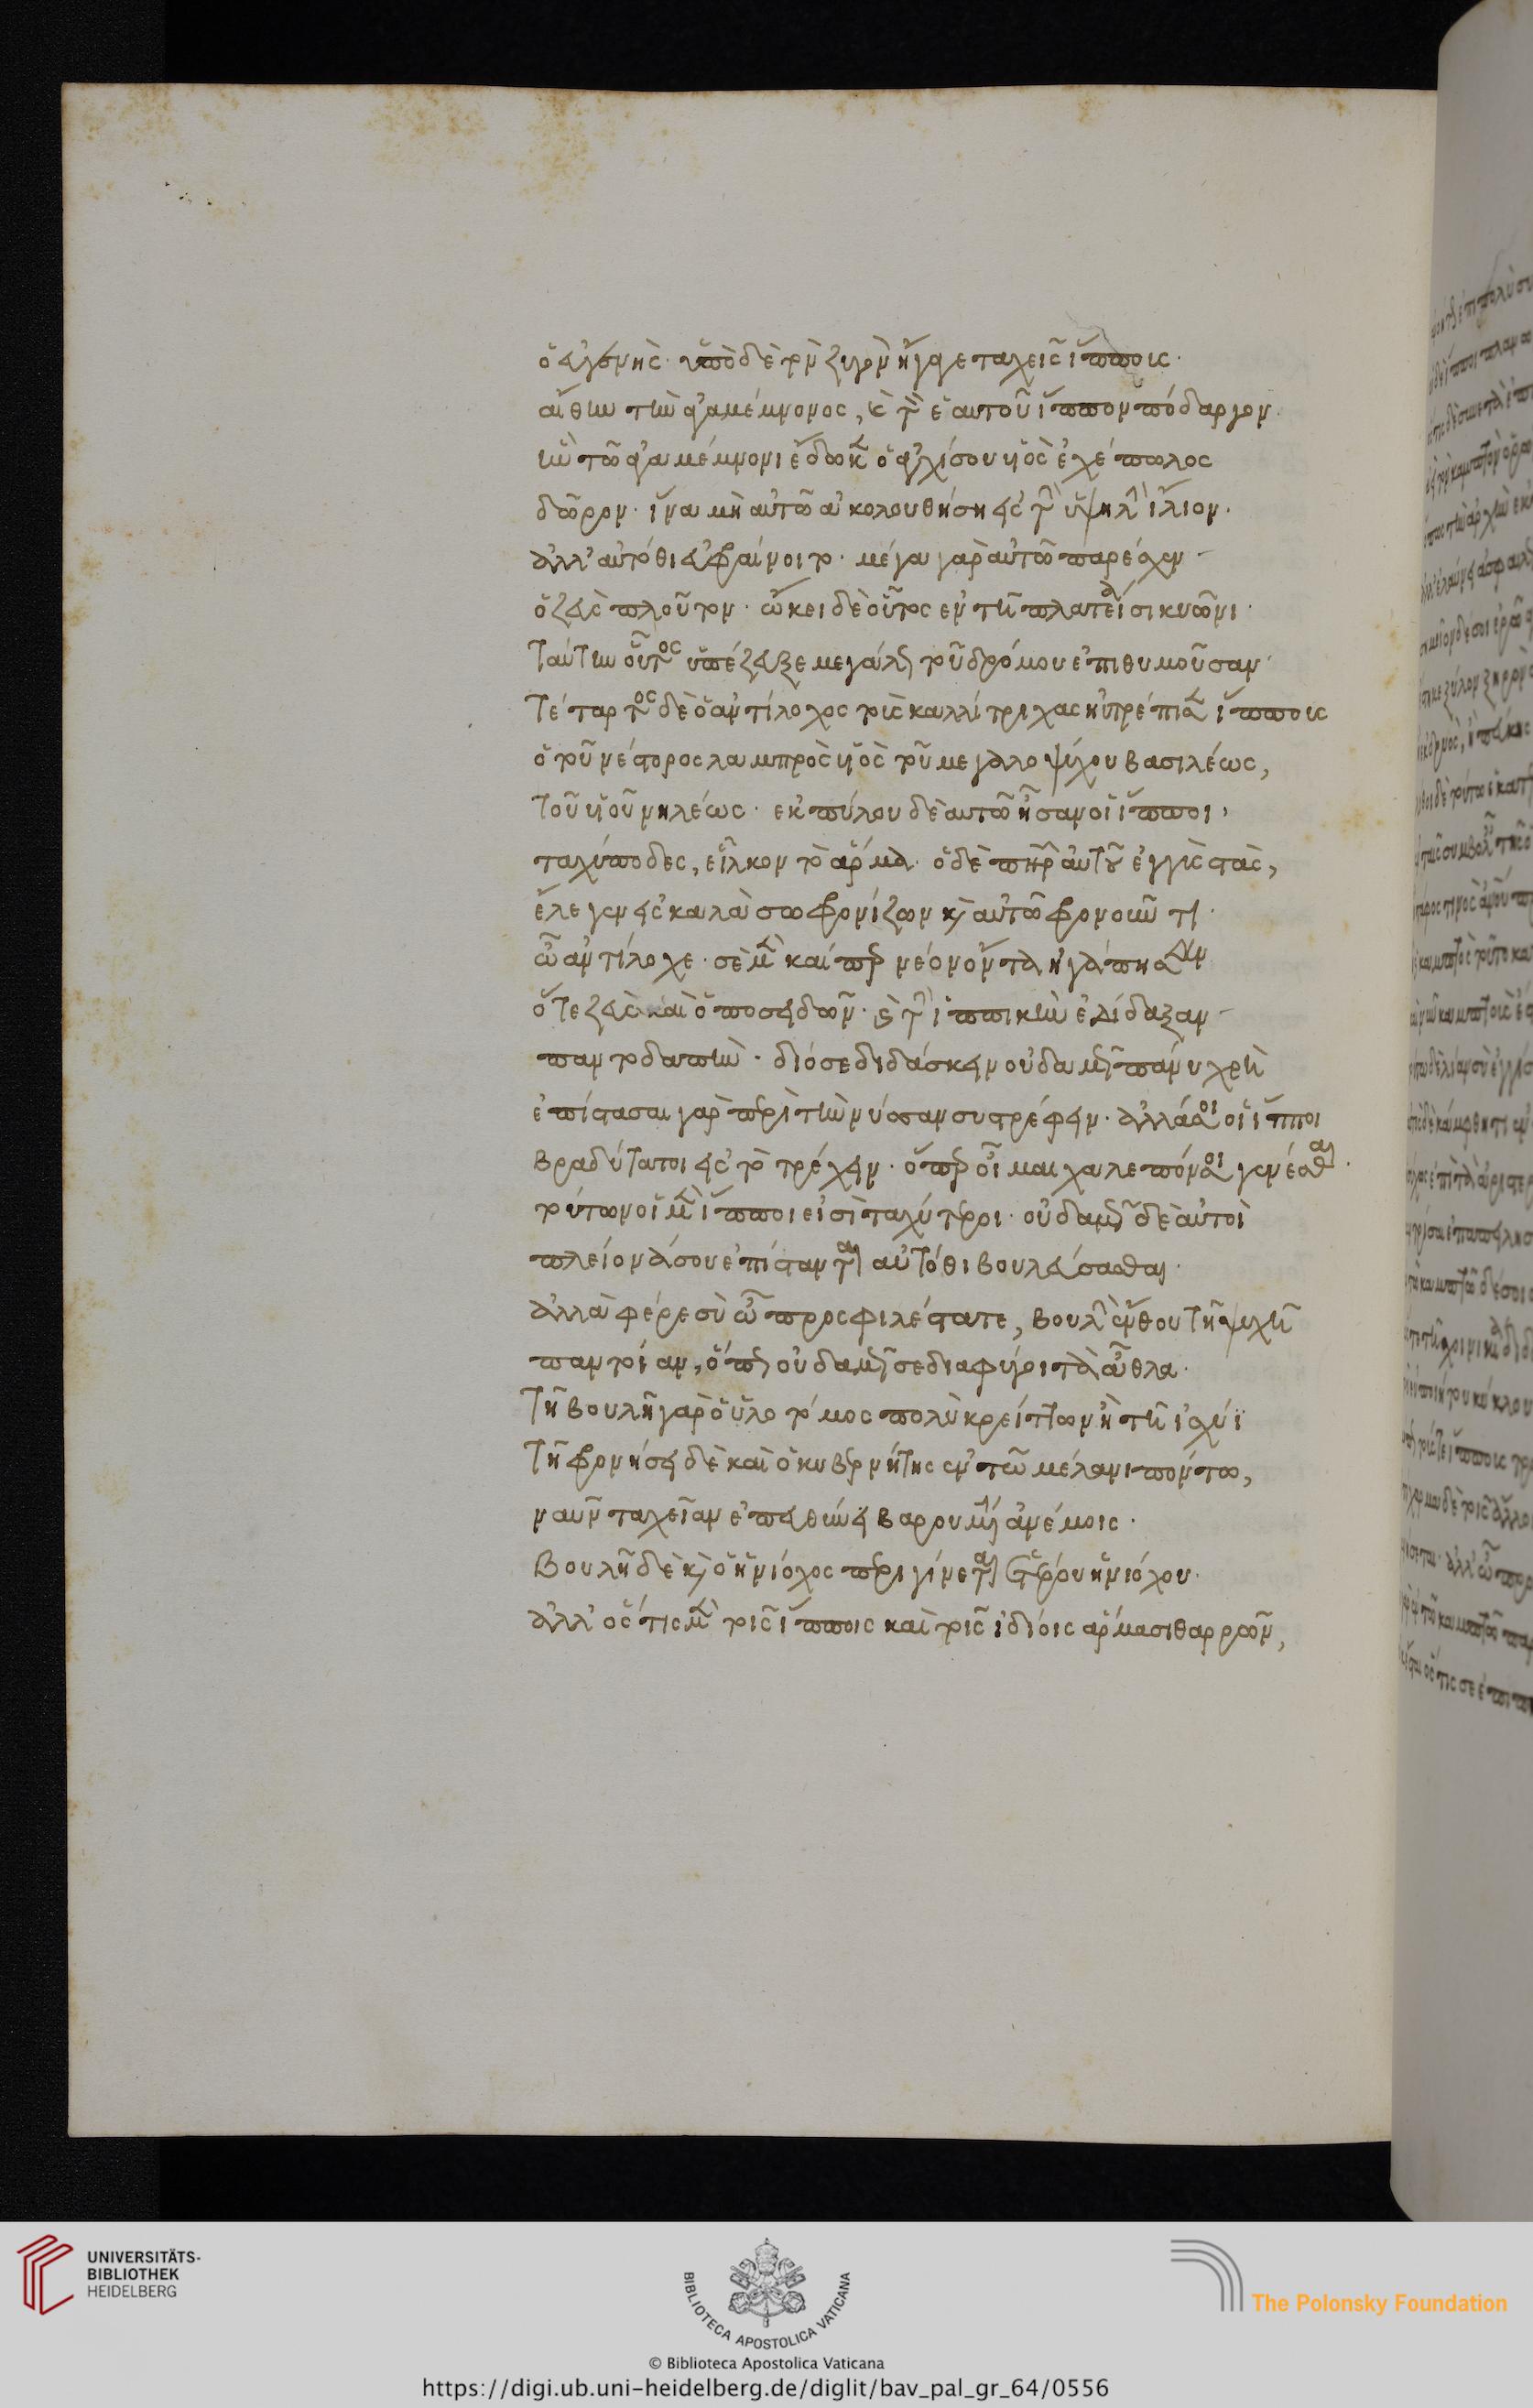 ὁ εὐγενὴς· ὑπὸ δὲ τὸν ζυγὸν ἤγαγε ταχεῖς ἵπποις·
αἴθην τὴν ἀγαμέμνονος, καὶ τὸν ἑαυτοῦ ἵππον πόδαργον·
ἣν τῶ ἀγαμέμνονι ἔδωκεν ὁ ἀγχίσου υἱὸς ἐχέπωλος
δῶρον· ἵνα μὴ αὐτῶ ἀκολουθήση εἰς τὴν ὑψηλὴν ἴλιον·
ἀλλ' αὐτόθι εὐφραίνοιτο· μέγαν γὰρ αὐτῶ παρέσχεν
ὁ ζεὺς πλοῦτον· ὤκει δὲ οὗτος ἐν τῆ πλατεία σικυῶνι·
ταύτην οὗτος ὑπέζευξε μεγάλως τοῦ δρόμου ἐπιθυμοῦσαν·
τέταρτος δὲ ὁ ἀντίλοχος τοὺς καλλίτριχας ηὐτρέπισεν ἵπποις
ὁ τοῦ νέστορος λαμπρὸς υἱὸς τοῦ μεγαλοψύχου βασιλέως,
τοῦ υἱοῦ νηλέως· ἐκ πύλου δὲ αὐτῶ ἦσαν οἱ ἵπποι,
ταχύποδες, εἷλκον τὸ ἅρμα· ὁ δὲ πατὴρ αὐτοῦ ἐγγὺς στὰς,
ἔλεγεν εἰς καλὰ σωφρονίζων καὶ αὐτῶ φρονοῦντι·
ὦ ἀντίλοχε· σὲ μὲν καίπερ νέον ὄντα ἠγάπησαν
ὅ τε ζεὺς καὶ ὁ ποσειδῶν· καὶ τὴν ἱππικὴν ἐδίδαξαν
παντοδαπὴν· διό σε διδάσκειν οὐδαμῶς πάνυ χρὴ
ἐπίστασαι γὰρ περὶ τὴν νύσσαν συστρέφειν· ἀλλά σοι οἱ ἵπποι
βραδύτατοι εἰς τὸ τρέχειν· ὅπερ οἶμαι χαλεπόν σοι γενέσθαι.
τούτων οἱ μὲν ἵπποι εἰσὶ ταχύτεροι· οὐδαμῶς δὲ αὐτοὶ
πλείονά σου ἐπίστανται αὐτόθι βουλεύσασθαι·
ἀλλὰ φέρε σὺ ὦ προσφιλέστατε, βουλὴν ἔνθου τῆ ψυχῆ
παντοίαν, ὅπως οὐδαμῶς σε διαφύγοι τὰ ἆθλα·
τῆ βουλῆ γὰρ ὁ ὑλοτόμος πολὺ κρείττων ἢ τῆ ἰσχύϊ
τῆ φρονήσει δὲ καὶ ὁ κυβερνήτης ἐν τῶ μέλανι πόντω,
ναῦν ταχεῖαν ἐπευθύνει βαρουμένην ἀνέμοις·
βουλῆ δὲ καὶ ὁ ἡνίοχος περιγίνεται ἑτέρου ἡνιόχου·
ἀλλ' ὅς τις μὲν τοῖς ἵπποις καὶ τοῖς ἰδίοις ἅρμασι θαρρῶν,
UNIVERSITÄTS-
BIBLIOTHEK
HEIDELBERG
BIBLIOTECA APOSTOLICA VATICANA
The Polonsky Foundation
© Biblioteca Apostolica Vaticana
https://digi.ub.uni-heidelberg.de/diglit/bav_pal_gr_64/0556